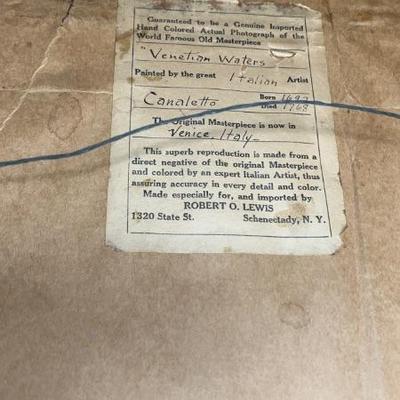 Guaranteed to be a Genuine Imported
Hand Colored Actual Photograph of the
World Famous Old Masterpiece
"Venetian Waters
Painted by the great Italian Artist
Canaletto Born 1697
Died 1768
The Original Masterpiece is now in
Venice, Italy
This superb reproduction is made from a
direct negative of the original Masterpiece
and colored by an expert Italian Artist, thus
assuring accuracy in every detail and color.
Made especially for, and imported by
ROBERT O. LEWIS
1320 State St. Schenectady, N. Y.